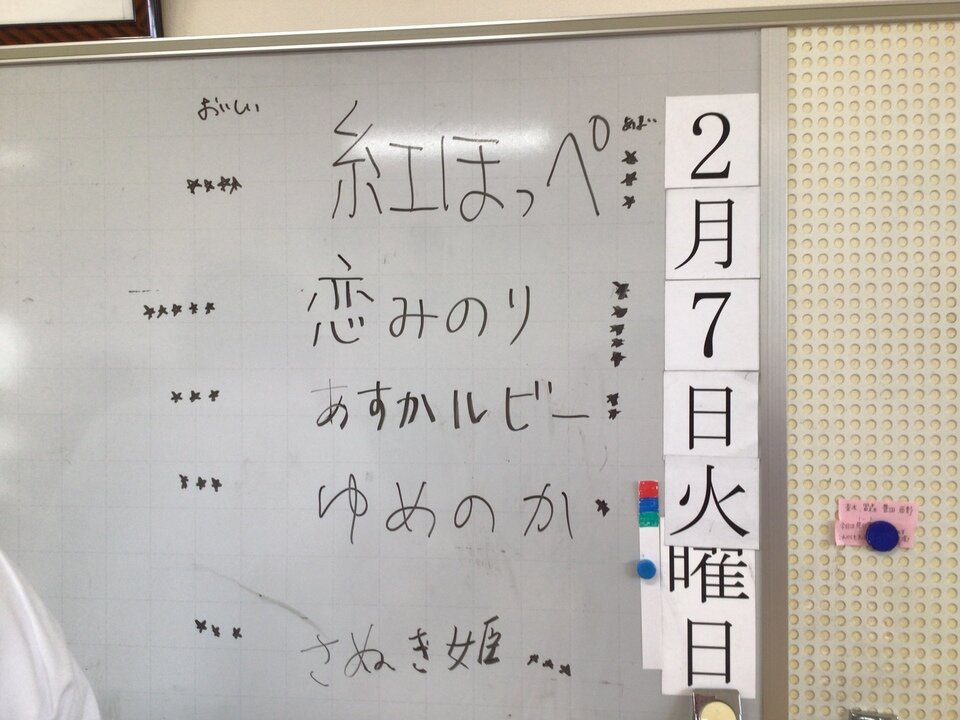 おいしい
あまい
★★★★ 紅ほっぺ ★★★
★★★★★ 恋みのり ★★★★★
★★★ あすかルビー ★★
★★★ ゆめのか ★
★★★ さぬき姫 ★★★
2月7日火曜日